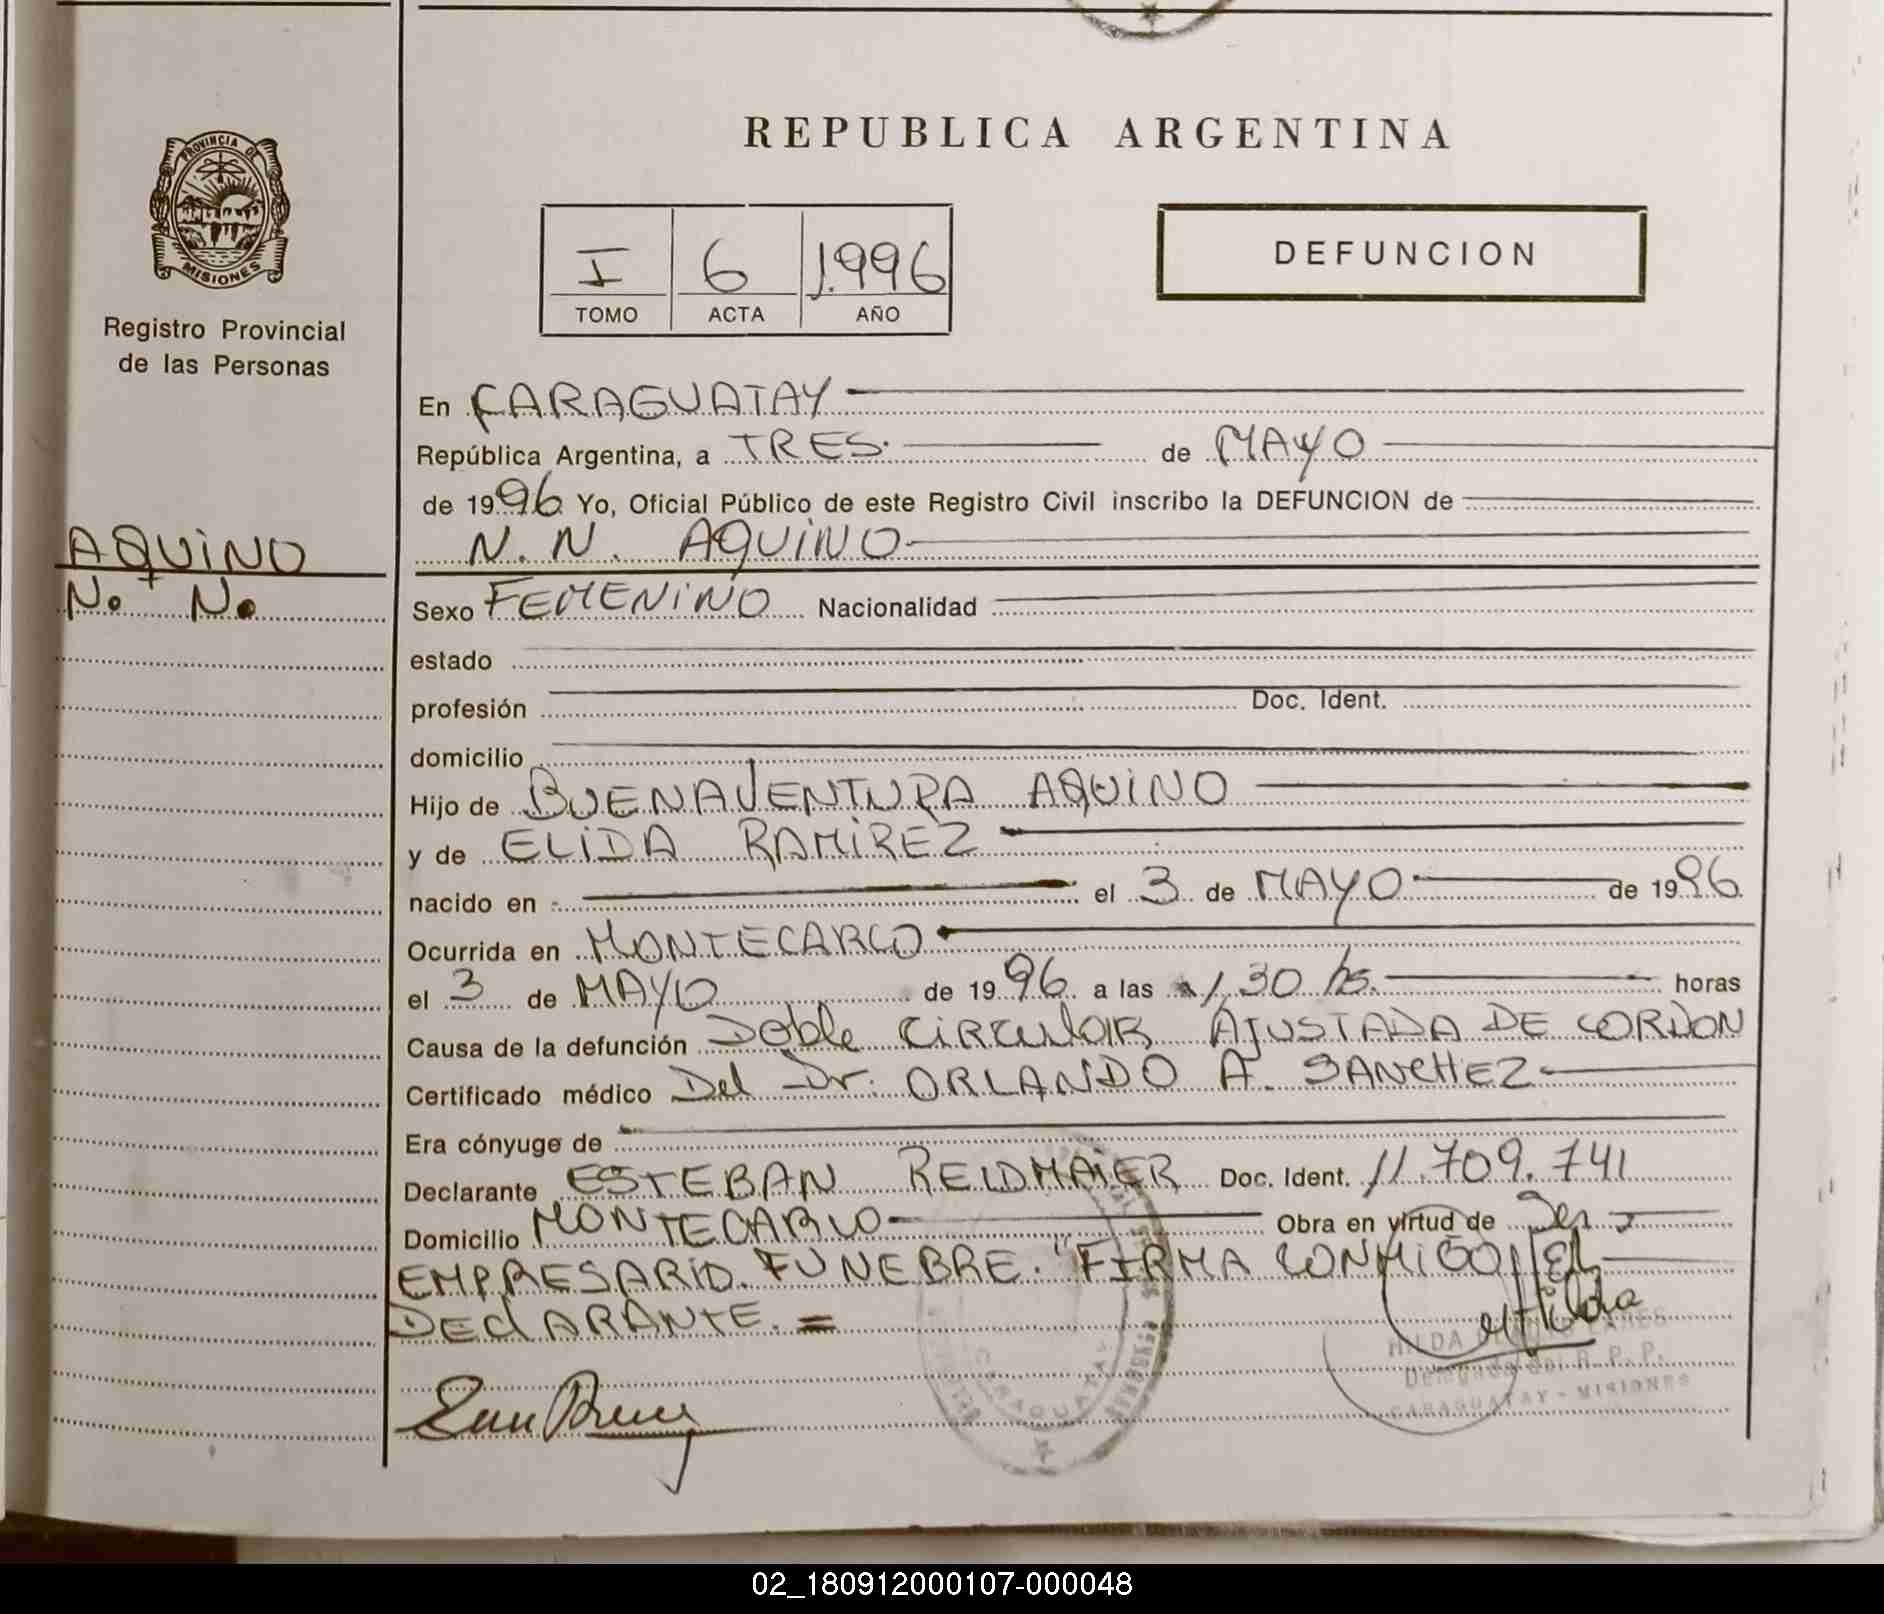 REPUBLICA ARGENTINA
PROVINCIA DE
MISIONES
Registro Provincial
de las Personas
I 6 1.996
TOMO ACTA AÑO
DEFUNCION
AQUINO
N. N.
En CARAGUATAY
República Argentina, a TRES. de MAYO
de 1996 Yo, Oficial Público de este Registro Civil inscribo la DEFUNCION de
N. N. AQUINO
Sexo FEMENINO Nacionalidad
estado
profesión Doc. Ident.
domicilio
Hijo de BUENAVENTURA AQUINO
y de ELIDA RAMIREZ
nacido en el 3 de MAYO de 1996
Ocurrida en MONTECARLO
el 3 de MAYO de 1996 a las 1,30 hs. horas
Causa de la defunción Doble CIRCULAR AJUSTADA DE CORDON
Certificado médico Del Dr. ORLANDO A. SANCHEZ
Era cónyuge de
Declarante ESTEBAN REIDMAIER Doc. Ident. 11.709.741
Domicilio MONTECARLO Obra en virtud de Ser
EMPRESARIO FUNEBRE. FIRMA CONMIGO EL
DEClARANTE. =
Delegada del R. P. P.
CARAGUATAY - MISIONES
CARAGUATAY
02_180912000107-000048